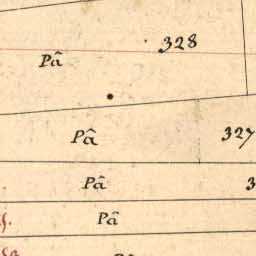 328
Pâ
Pâ 327
Pâ 3
Pâ